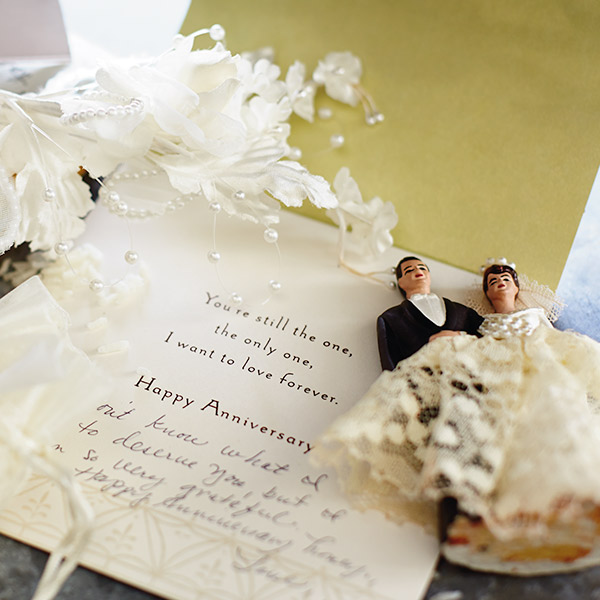 You're still the one,
the only one,
I want to love forever.
Happy Anniversary
on't know what I
to deserve you, but I
so very grateful.
Happy Anniversary